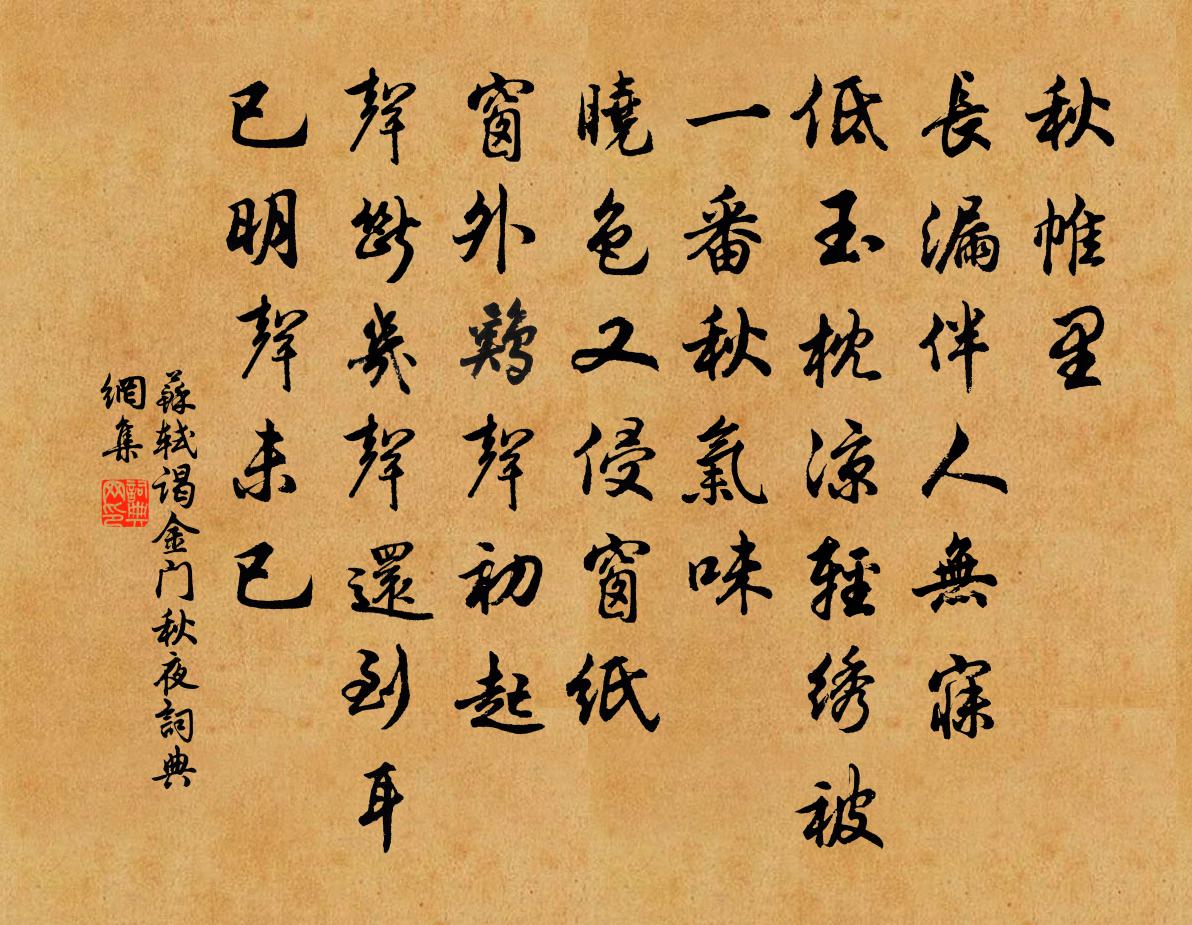 秋帷里
長漏伴人無寐
低玉枕涼輕绣被
一番秋氣味
曉色又侵窗紙
窗外鷄聲初起
聲斷幾聲還到耳
已明聲未已
蘇軾谒金门秋夜詞典
網集
詞典网印